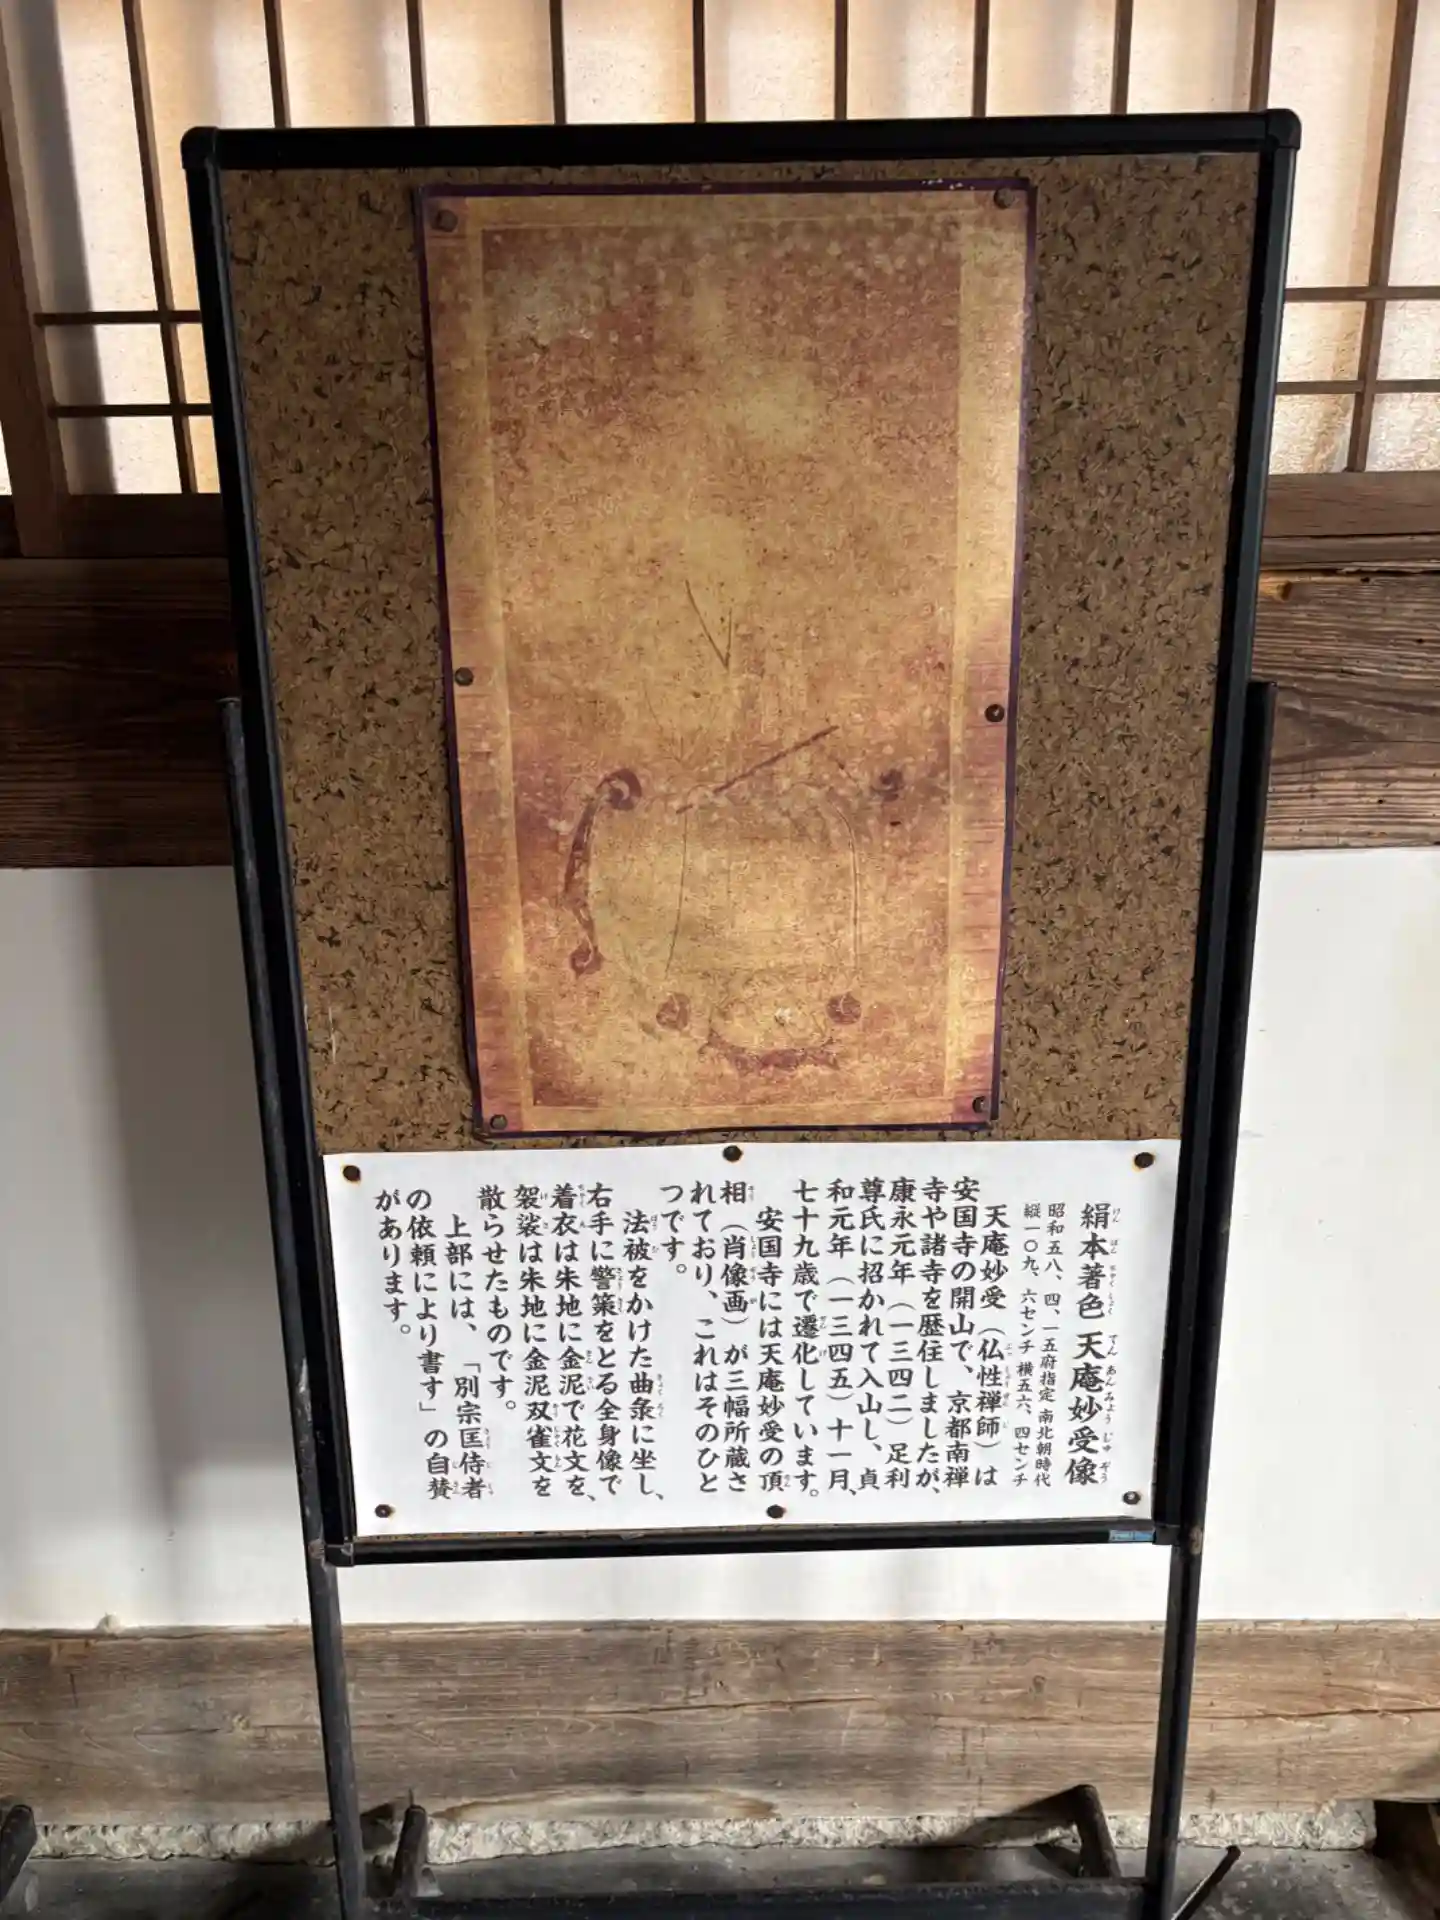 絹本著色 天庵妙受像
昭和五八、四、一五府指定 南北朝時代
縦一〇九、六センチ 横五六、四センチ
天庵妙受（仏性禅師）は
安国寺の開山で、京都南禅
寺や諸寺を歴住しましたが、
康永元年（一三四二）足利
尊氏に招かれて入山し、貞
和元年（一三四五）十一月、
七十九歳で遷化しています。
安国寺には天庵妙受の頂
相（肖像画）が三幅所蔵さ
れており、これはそのひと
つです。
法被をかけた曲彔に坐し、
右手に警策をとる全身像で
着衣は朱地に金泥で花文を、
袈裟は朱地に金泥双雀文を
散らせたものです。
上部には、「別宗匡侍者
の依頼により書す」の自賛
があります。